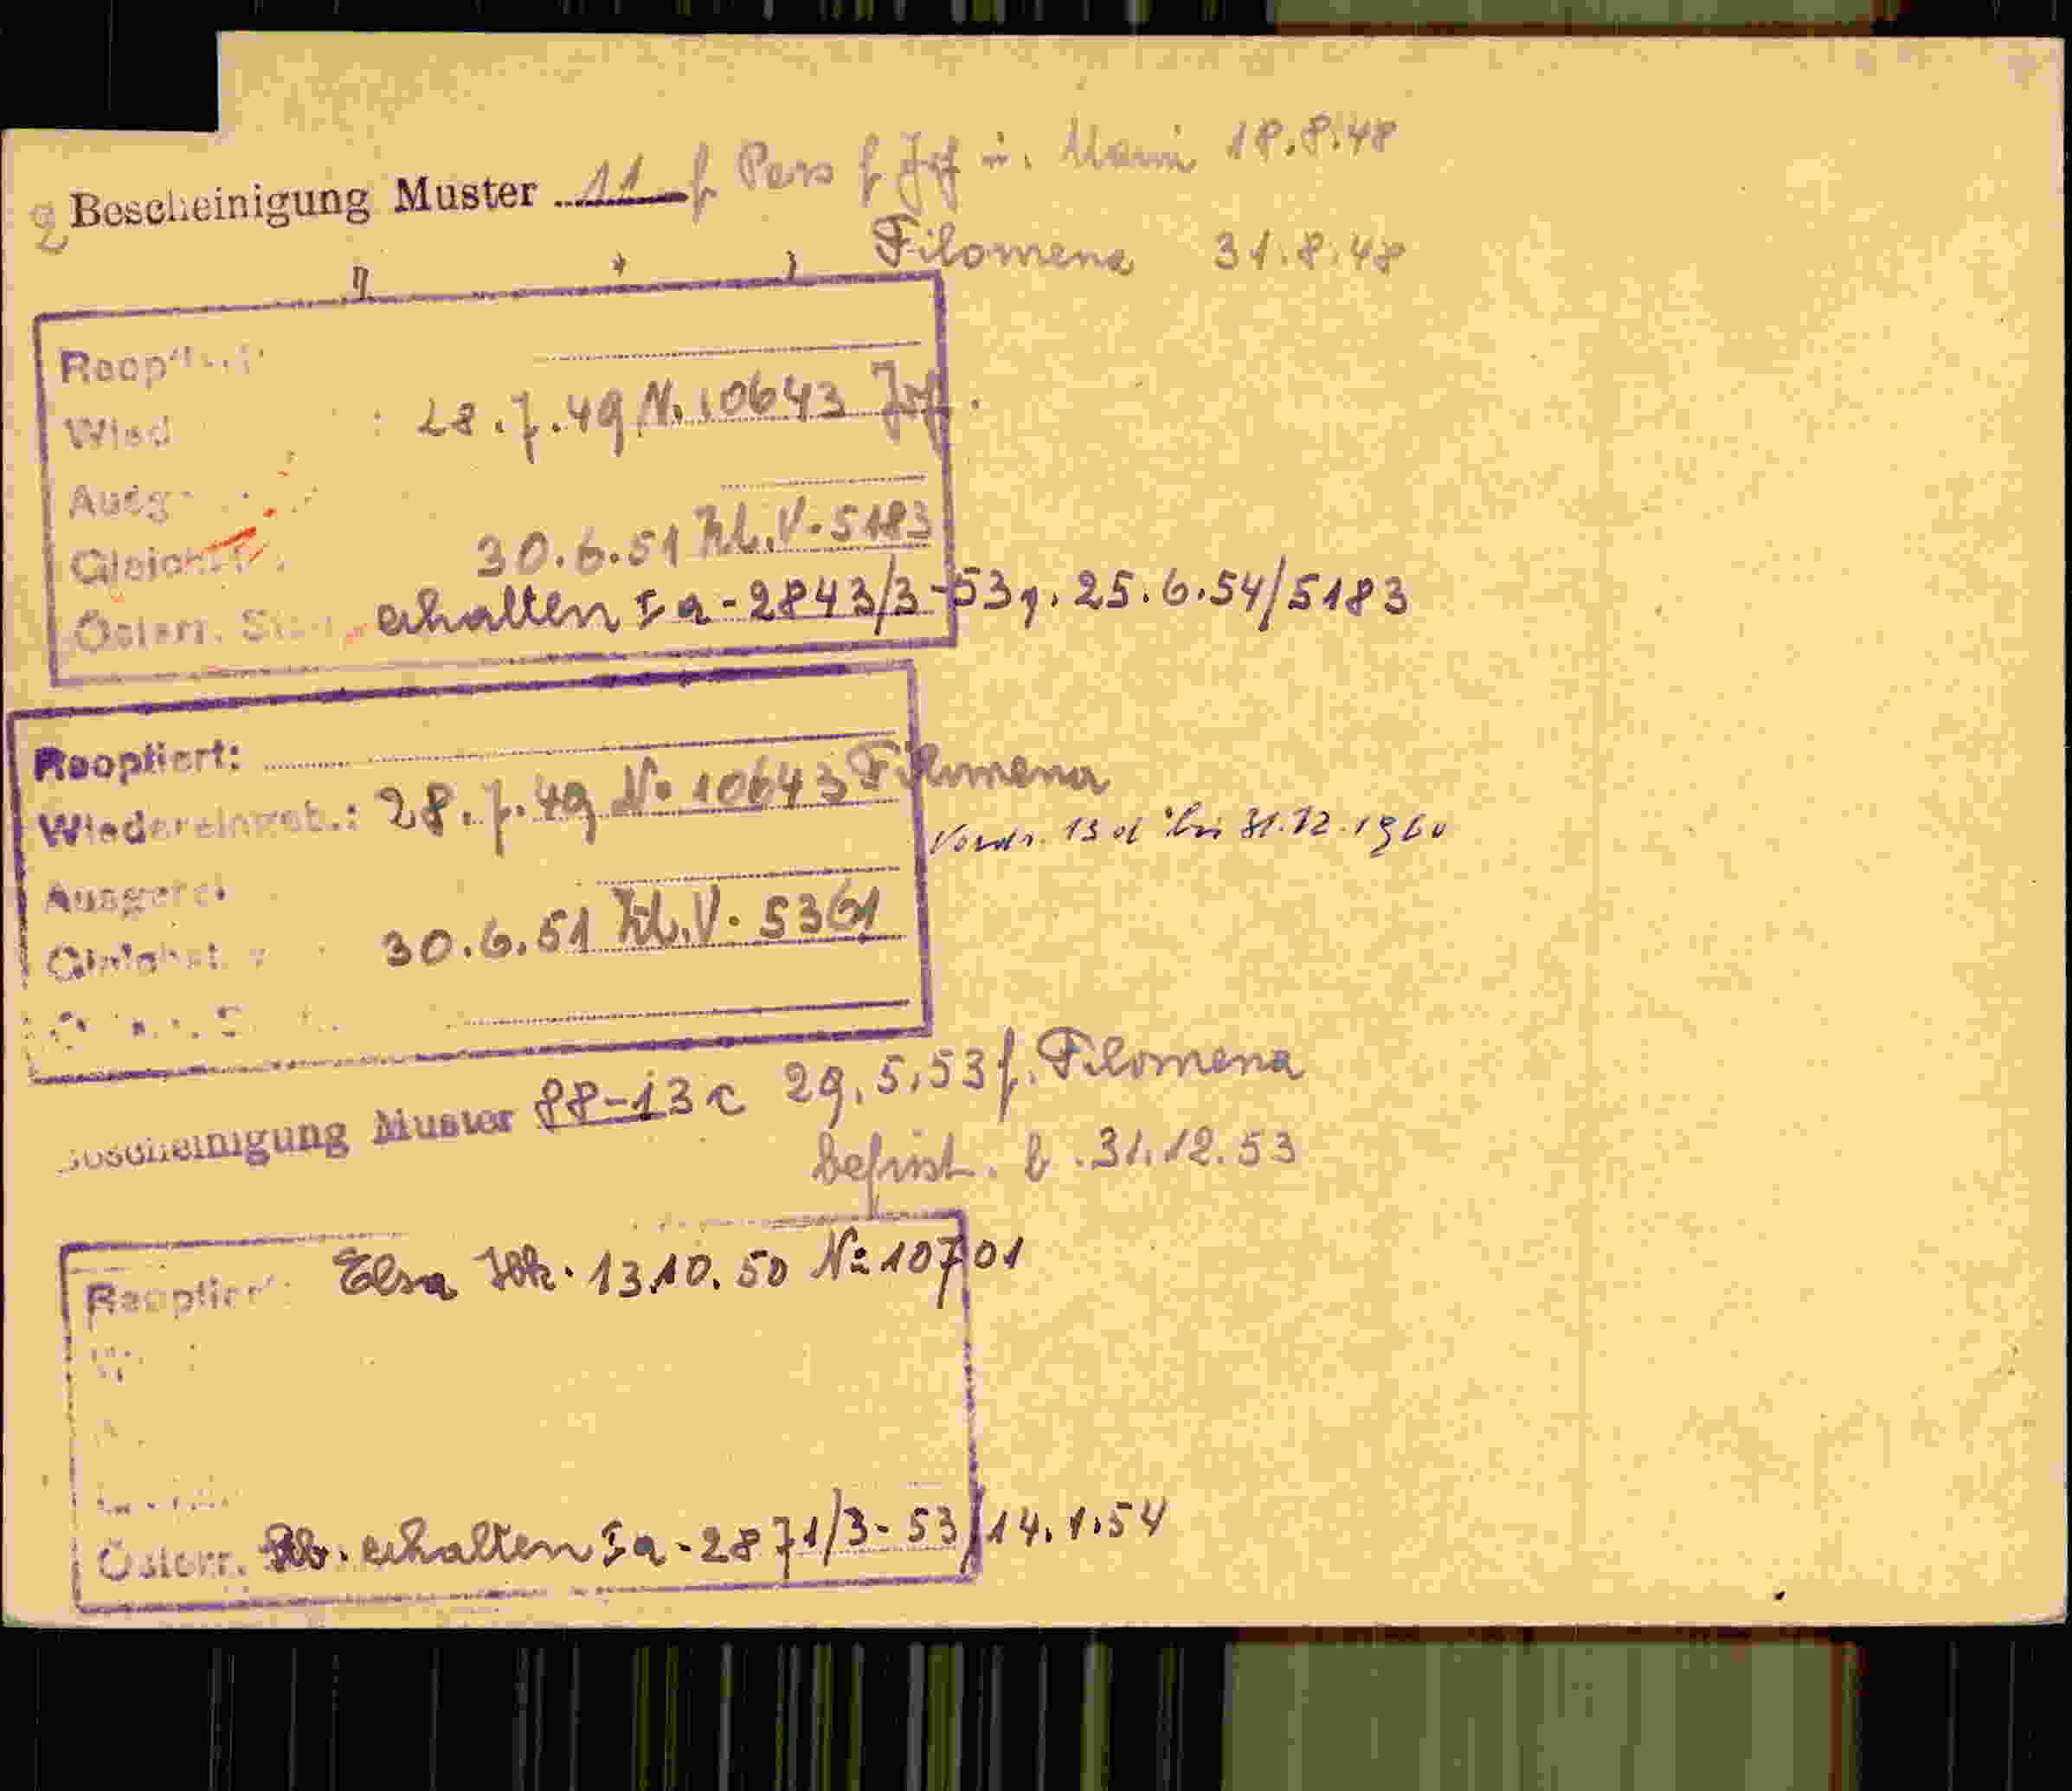 Bescheinigung Muster 11 f Pers f Jos u. Maria 18.8.48
Filomena 31.8.48
Reoptiert:
Wied : 28.7.49 No 10643 Jos.
Ausg
Gleich 30.6.51 Zl. V. 5183
Österr. St erhalten I a - 2843/3-53 25.6.54/5183
Reoptiert:
Wiedereingeb.: 28.7.49 No 10643 Filomena
13 d bis 31.12.1960
Ausger
Gleichst. 30.6.51 Zl. V. 5361
Bescheinigung Muster 88-13c 29.5.53 f. Filomena
befrist. b. 31.12.53
Reoptiert: Elsa 13.10.50 No 10701
Österr. Stb. erhalten I a - 2871/3-53/14.1.54